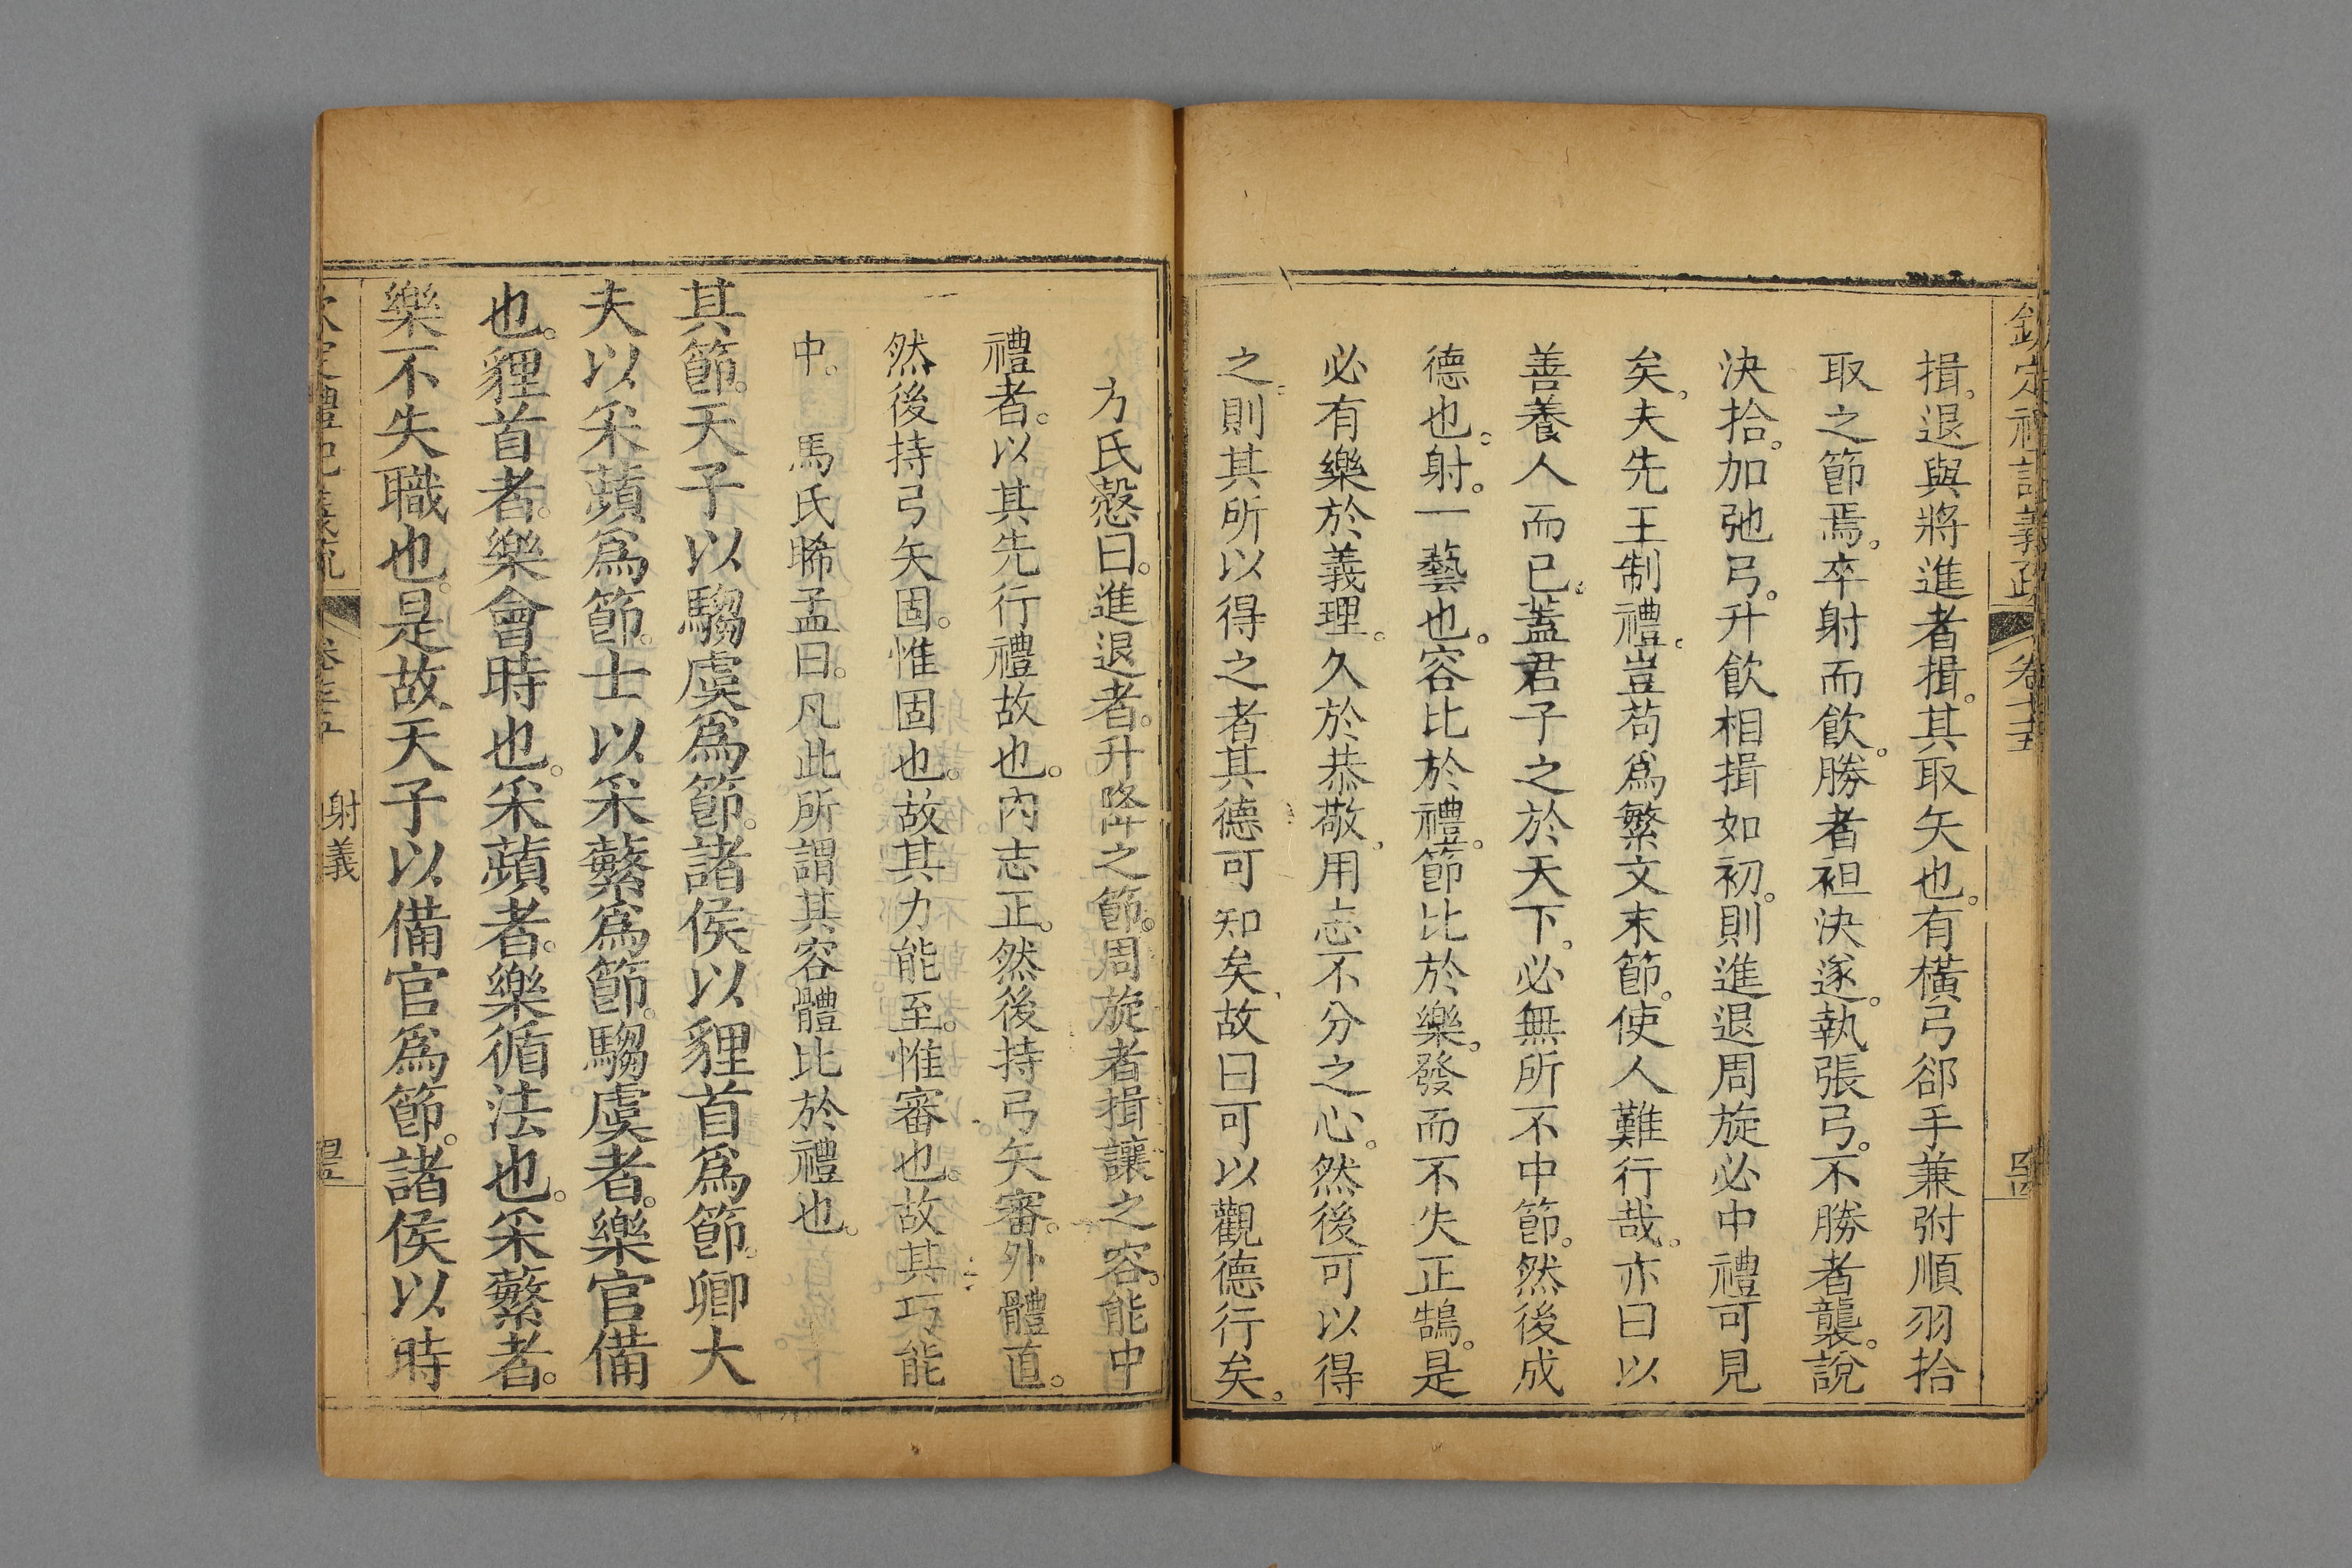 欽定禮記義疏 卷七十五 
揖。退與將進者揖。其取矢也。有橫弓卻手兼弣順羽拾
取之節焉。卒射而飲。勝者袒決遂。執張弓。不勝者襲。說
決拾。加弛弓。升飲相揖如初。則進退周旋必中禮可見
矣。夫先王制禮。豈苟爲繁文末節。使人難行哉。亦曰以
善養人而已。蓋君子之於天下。必無所不中節。然後成
德也。射。一藝也。容比於禮。節比於樂。發而不失正鵠。是
必有樂於義理。久於恭敬。用志不分之心。然後可以得
之。則其所以得之者其德可知矣。故曰可以觀德行矣。
方氏慤曰。進退者。升降之節。周旋者揖讓之容。能中
禮者。以其先行禮故也。內志正。然後持弓矢審。外體直。
然後持弓矢固。惟固也。故其力能至。惟審也。故其巧能
中。 馬氏晞孟曰。凡此所謂其容體比於禮也。
其節。天子以騶虞爲節。諸侯以貍首爲節。卿大
夫以采蘋爲節。士以采蘩爲節。騶虞者。樂官備
也。貍首者。樂會時也。采蘋者。樂循法也。采蘩者。
樂不失職也。是故天子以備官爲節。諸侯以時
射義